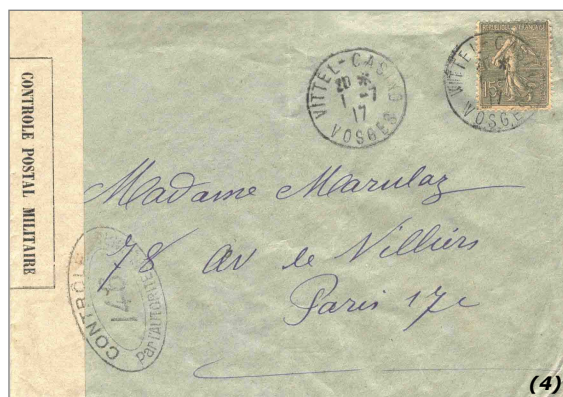 CONTROLE POSTAL MILITAIRE
VITTEL-CASINO
20 *
1 -7
17
VOSGES
VITTEL-CAS
20 *
17
VOSGES
Madame Marulaz
78 av de Villiers
Paris 17e
CONTRÔLE
Par l'AUTORITÉ
(4)